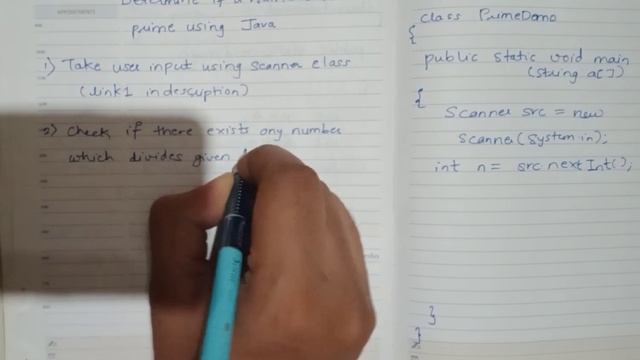 Determine if a
prime using Java
1) Take user input using Scanner class
(link1 in description)
2) Check if there exists any number
which divides given
class PrimeDemo
{
public static void main
(String a[])
{
Scanner src = new
Scanner(System.in);
int n = src.nextInt();
}
}